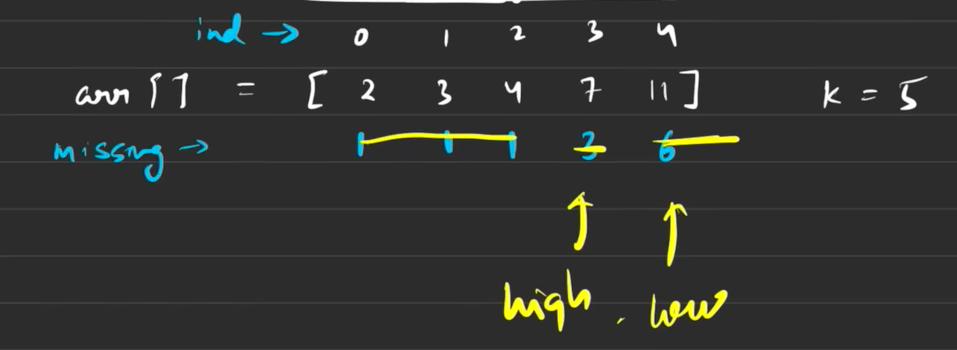 ind → 0 1 2 3 4
arr [] = [ 2 3 4 7 11 ] k = 5
missing → 1 1 1 3 6
high . low